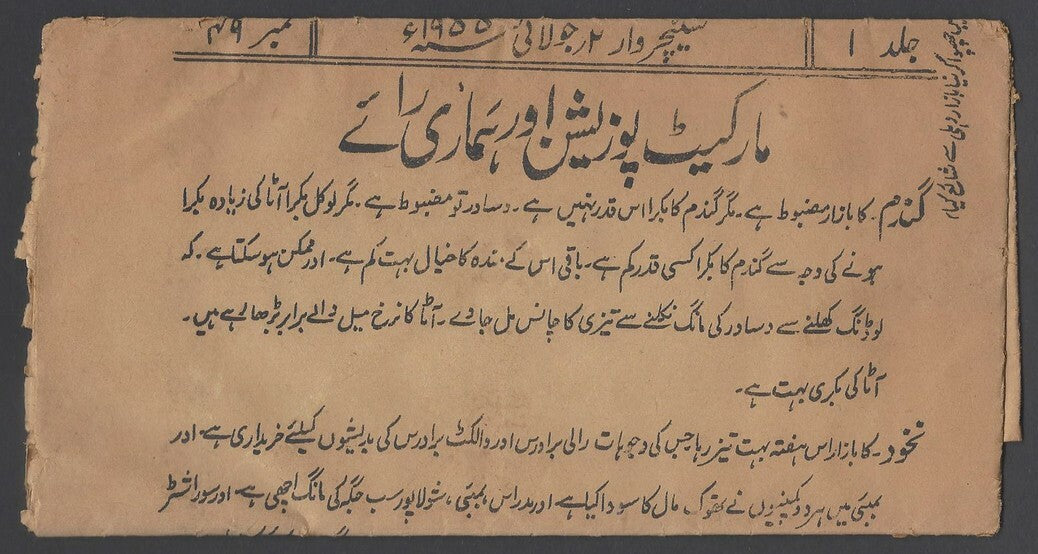 جلد ۱ سنیچر وار ۲ر جولائی سنہ ۱۹۵۵ء نمبر ۴۹
مارکیٹ پوزیشن اور ہماری رائے
گندم۔ کا بازار مضبوط ہے۔ مگر گندم کا بکرا اس قدر نہیں ہے۔ دساور تو مضبوط ہے۔ مگر لوکل بکرا آٹا کی زیادہ بکرا
ہونے کی وجہ سے گندم کا بکرا کسی قدر کم ہے۔ باقی اس کے مندہ کا خیال بہت کم ہے۔ اور ممکن ہو سکتا ہے۔ کہ
لوڈنگ کھلنے سے دساور کی مانگ نکلنے سے تیزی کا چانس مل جاوے۔ آٹا کا نرخ میل والے برابر بڑھا رہے ہیں۔
آٹا کی بکری بہت ہے۔
نخود۔ کا بازار اس ہفتہ بہت تیز رہا جس کی وجوہات رالی برادرس اور والکٹ برادرس کی بدیشوں کیلئے خریداری ہے۔ اور
بمبئی میں ہر دو کمپنیوں نے تھوک مال کا سودا کیا ہے اور مدراس، بمبئی، شولاپور سب جگہ کی مانگ اچھی ہے اور سوراشٹر
میں چھپوا کر نیا بازار دہلی سے شائع کیا۔